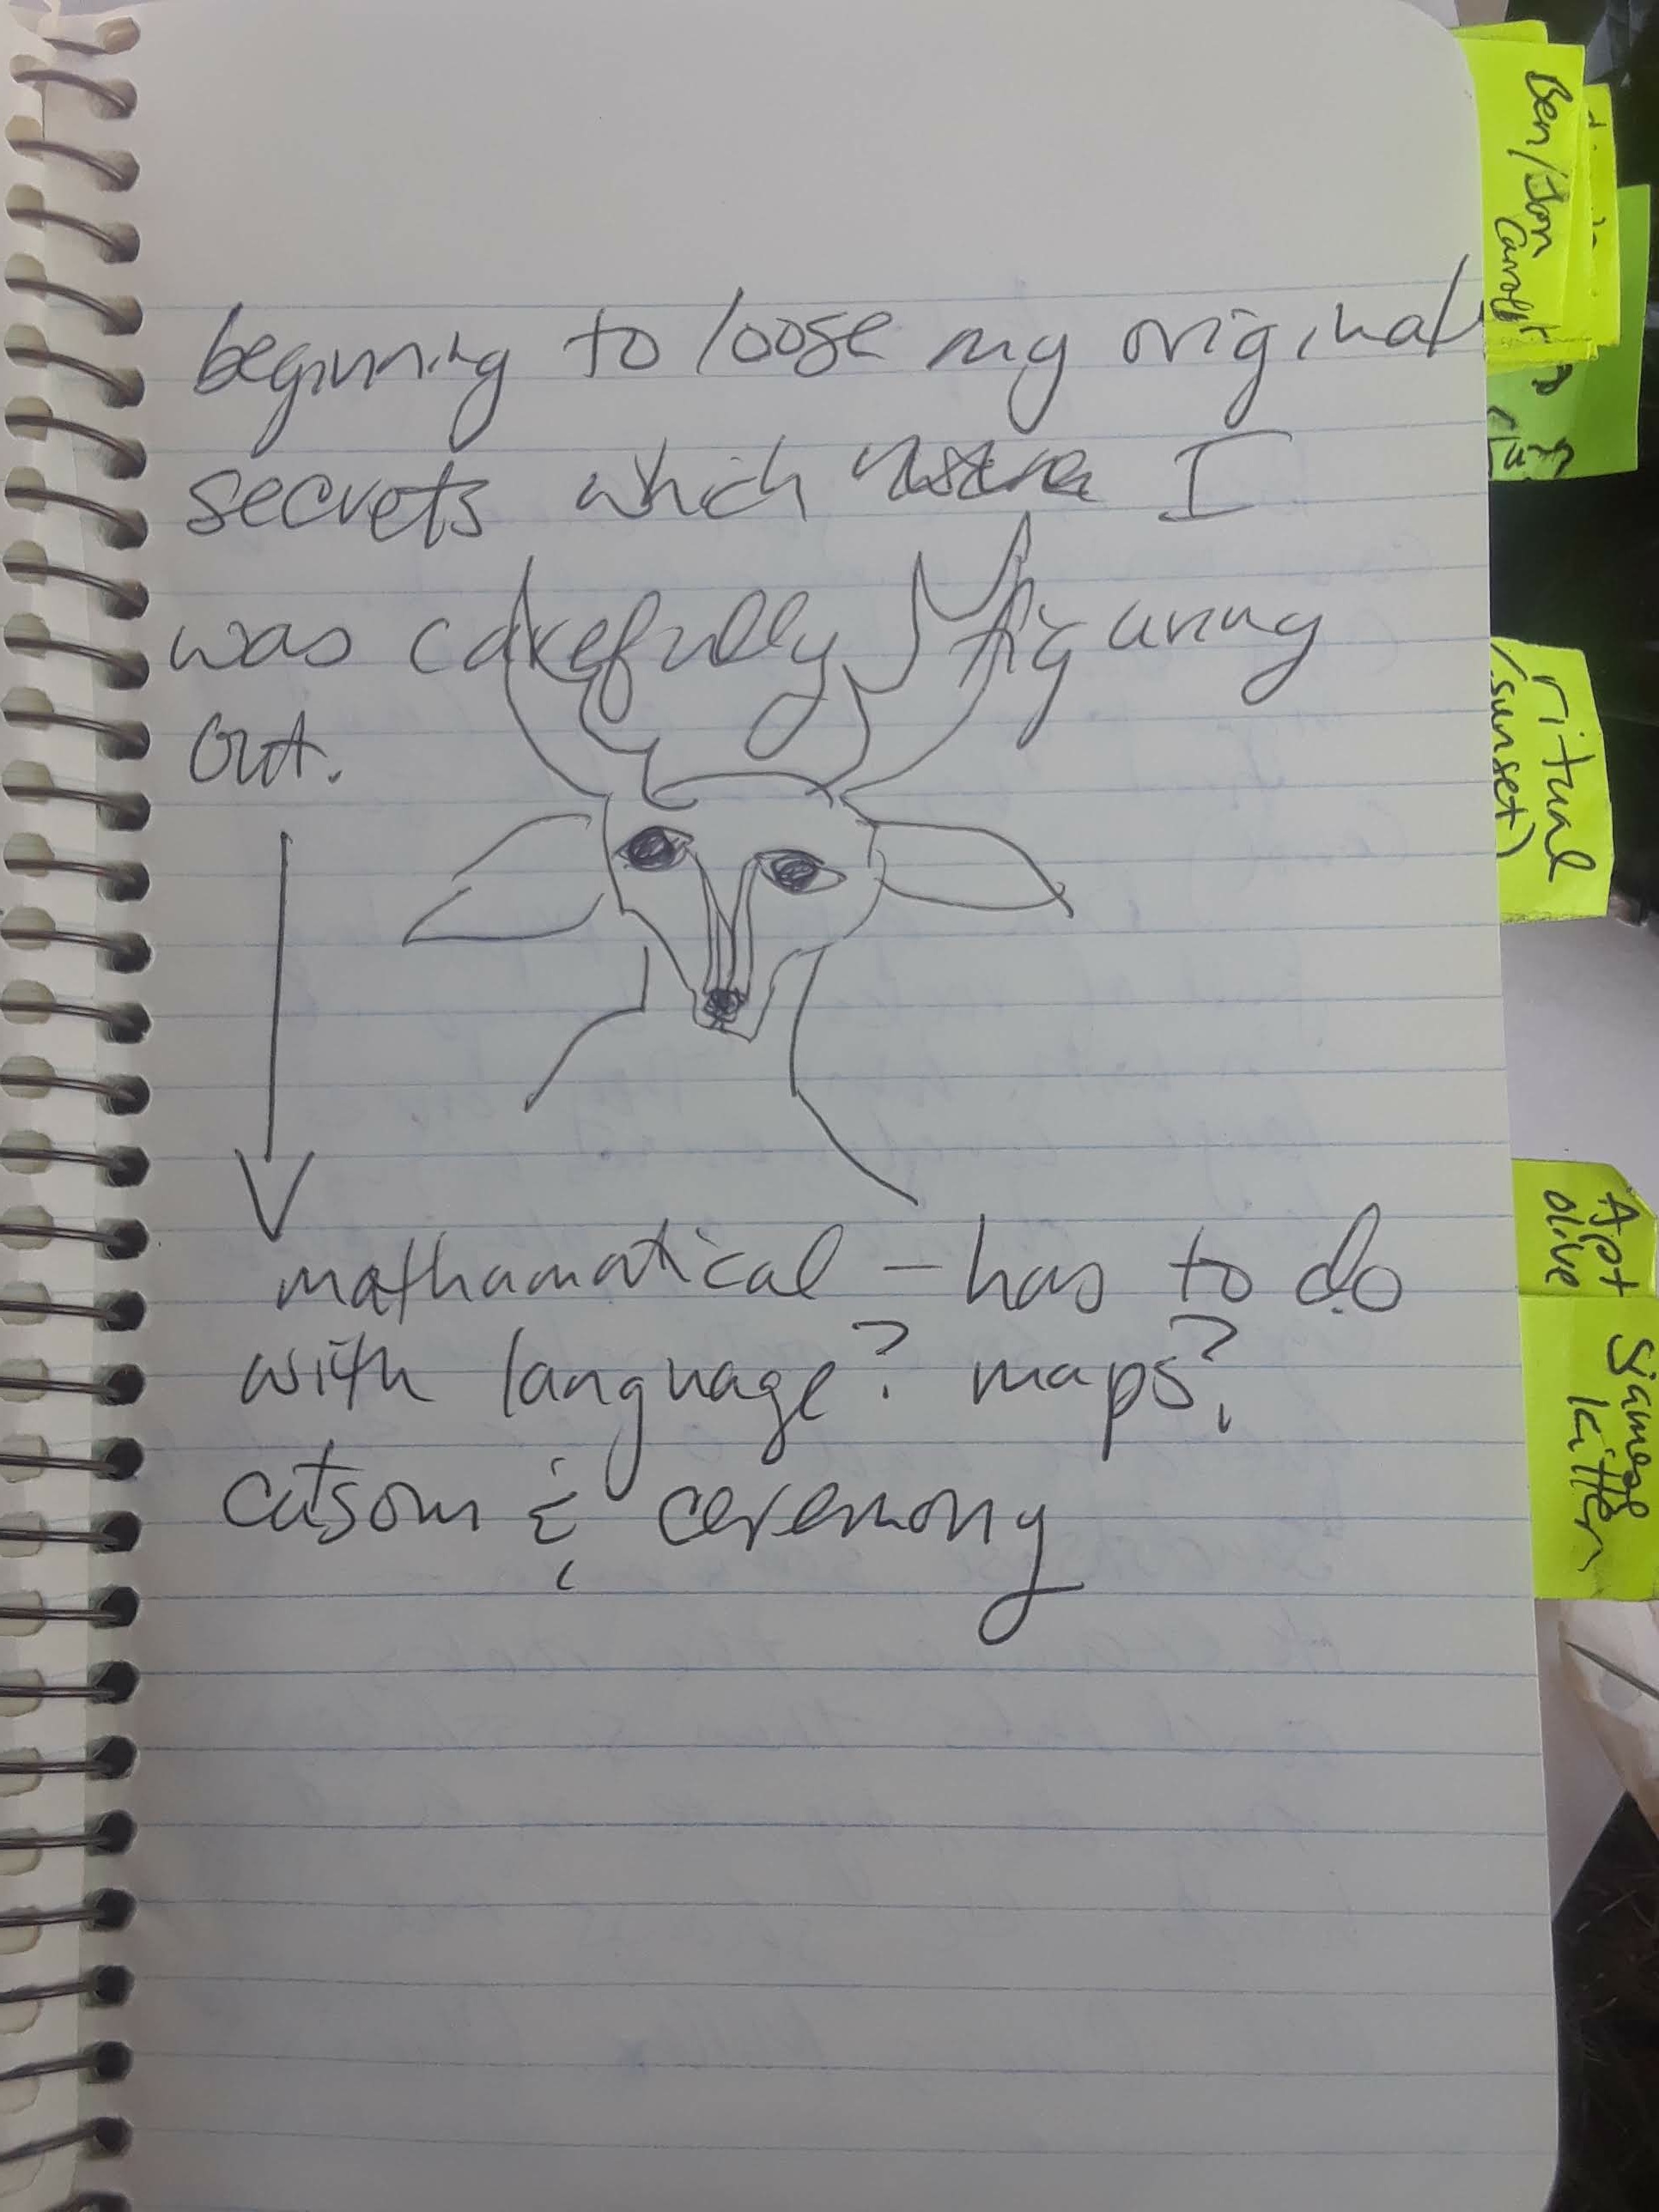 beginning to loose my original
secrets which I
was carefully figuring
out.
mathamatical – has to do
with language? maps?
catsom & ceremony
Ben/Jon
Carroll
ritual
/sunset)
Apt
olive
Siamese
kitten